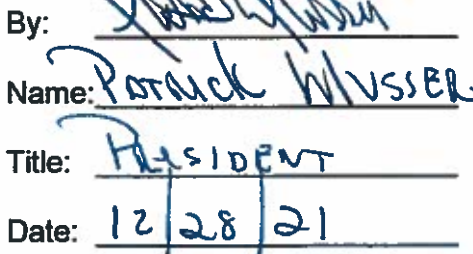 By:
Name: PATRICK MUSSER
Title: PRESIDENT
Date: 12 | 28 | 21